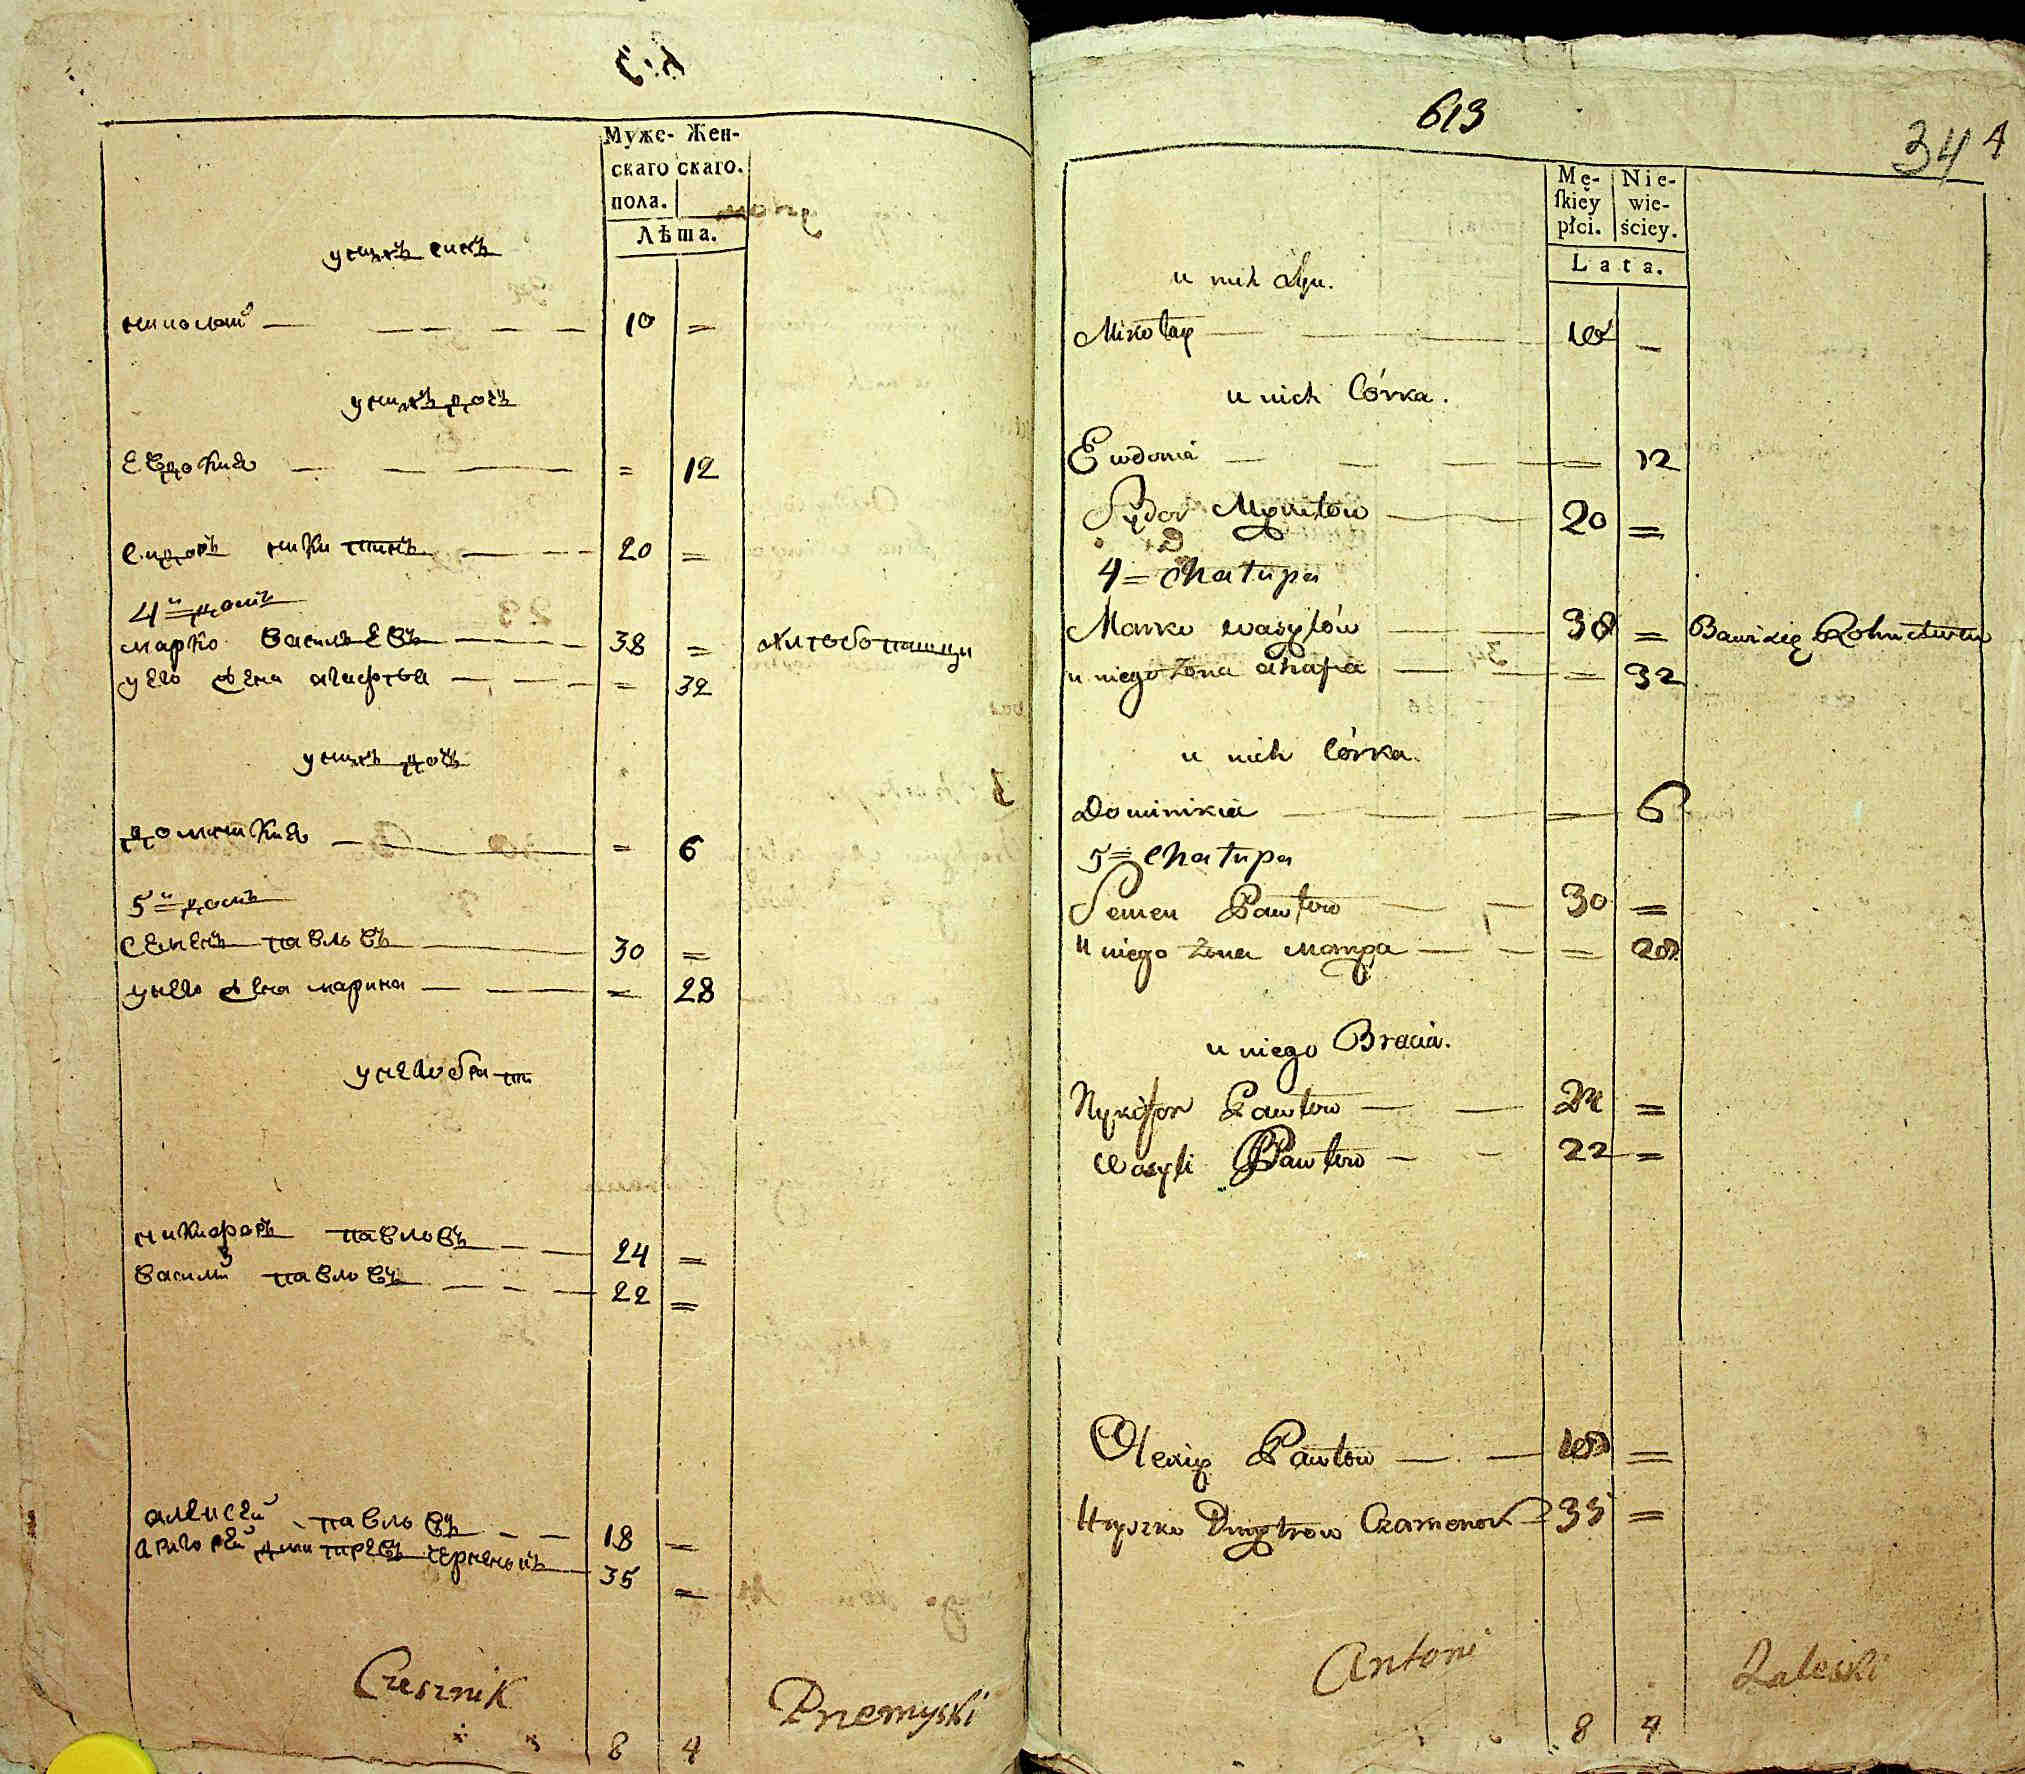 Муже- Жен-
скаго скаго.
пола.
Лѣта.
у нихъ сынъ
николай 10 =
у нихъ дочь
Евдокия = 12
сидоръ никитинъ 20 =
4й домъ
марко васильевъ 38 = хлѣбопашцы
у его жена агафья = 32
у нихъ дочь
домникия = 6
5й домъ
семенъ павловъ 30 =
у него жена марина = 28
у него братья
никифоръ павловъ 24 =
василий павловъ 22 =
алексей павловъ 18 =
григорей дмитревъ 35 =
Czesznik Przemyski
8 4
613
34 4
Mę- Nie-
ſkiey wie-
płci. ściey.
Lata.
u nich Syn.
Mikołay 10 =
u nich Córka.
Ewdonia = 12
Sydor Mykitow 20 =
4 = Chałupa
Marko wasylów 38 = Bawiący Rolnictwem
u niego żona ahafia = 32
u nich Córka.
Dominikia = 6
5 = Chałupa
Semen Pawłow 30 =
u niego żona maryna = 28
u niego Bracia.
Nykifor Pawłow 24 =
Wasyli Pawłow 22 =
Olexiy Pawłow 18 =
Hryszko Dmytrow 35 =
Antoni Zaleski
8 4